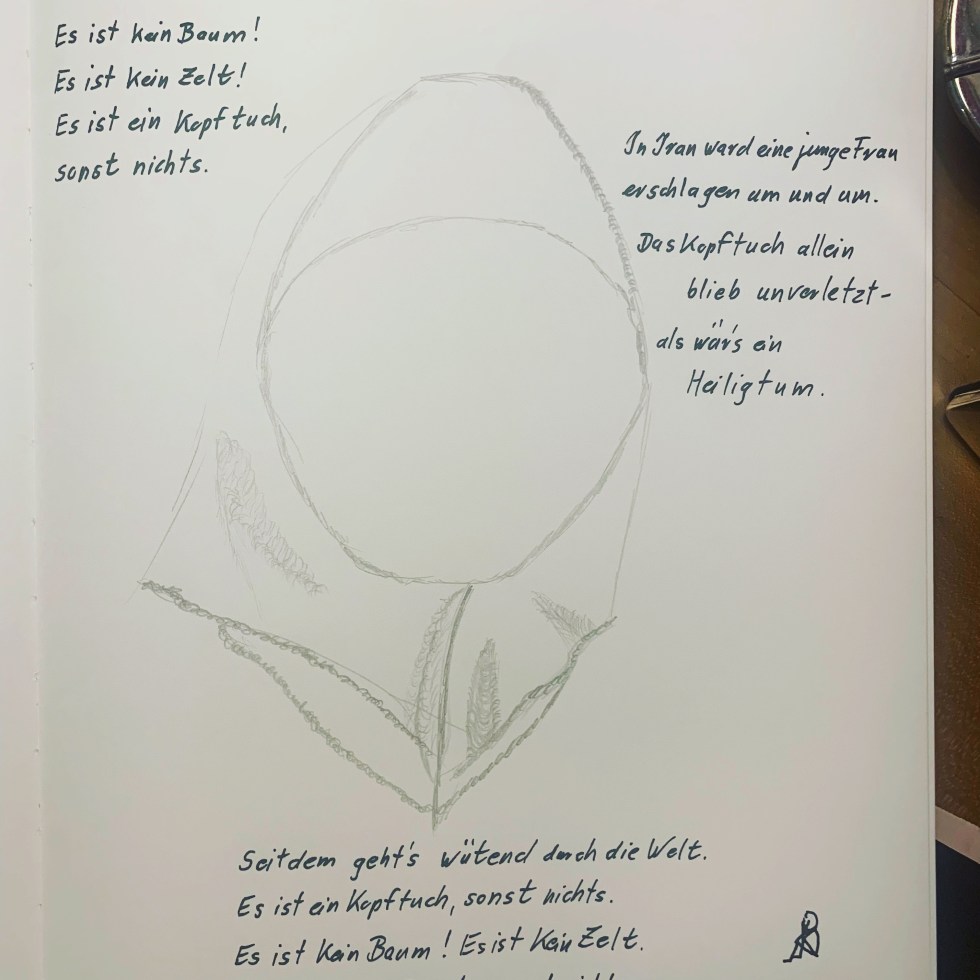 Es ist kein Baum!
Es ist kein Zelt!
Es ist ein Kopftuch,
sonst nichts.
In Iran ward eine junge Frau
erschlagen um und um.
Das Kopftuch allein
blieb unverletzt-
als wär's ein
Heiligtum.
Seitdem geht's wütend durch die Welt.
Es ist ein Kopftuch, sonst nichts.
Es ist kein Baum! Es ist kein Zelt.